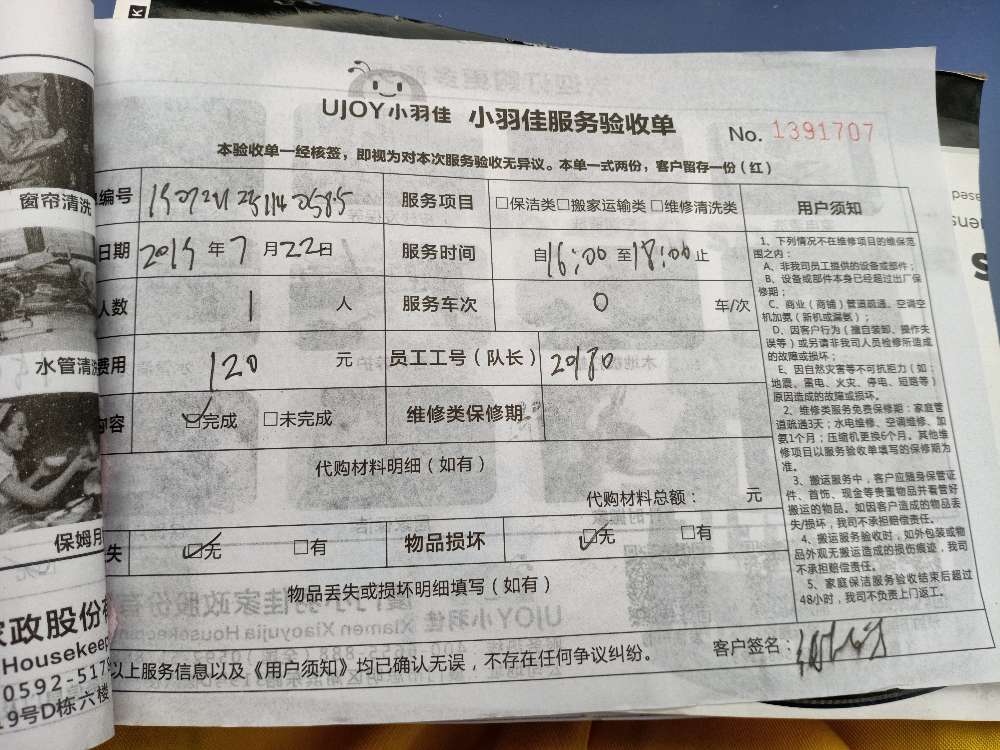 UJOY小羽佳 小羽佳服务验收单
No. 1391707
本验收单一经核签，即视为对本次服务验收无异议。本单一式两份，客户留存一份（红）
编号
服务项目 □保洁类□搬家运输类□维修清洗类
用户须知
日期 2019 年 7 月 22 日
服务时间 自 16:00 至 18:00 止
人数 1 人
服务车次 0 车/次
费用 120 元
员工工号（队长） 29180
内容 ☑完成 □未完成
维修类保修期
代购材料明细（如有）
代购材料总额： 元
失 ☑无 □有
物品损坏 ☑无 □有
物品丢失或损坏明细填写（如有）
以上服务信息以及《用户须知》均已确认无误，不存在任何争议纠纷。
客户签名：
1、下列情况不在维修项目的维保范
围之内：
A、非我司员工提供的设备或部件；
B、设备或部件本身已经超过出厂保
修期；
C、商业（商铺）管道疏通、空调空
机加氨（新机或漏氨）；
D、因客户行为（擅自装卸、操作失
误等）或另请非我司人员检修所造成
的故障或损坏；
E、因自然灾害等不可抗拒力（如：
地震、雷电、火灾、停电、短路等）
原因造成的故障或损坏。
2、维修类服务免费保修期：家庭管
道疏通3天；水电维修、空调维修、加
氨1个月；压缩机更换6个月。其他维
修项目以服务验收单填写的保修期为
准。
3、搬运服务中，客户应随身保管证
件、首饰、现金等贵重物品并看管好
搬运的物品。如因客户造成的物品丢
失/损坏，我司不承担赔偿责任。
4、搬运服务验收时，如外包装或物
品外观无搬运造成的损伤痕迹，我司
不承担赔偿责任。
5、家庭保洁服务验收结束后超过
48小时，我司不负责上门返工。
窗帘清洗
水管清洗
保姆月
家政股份有
Housekeep
0592-5179
19号D栋六楼